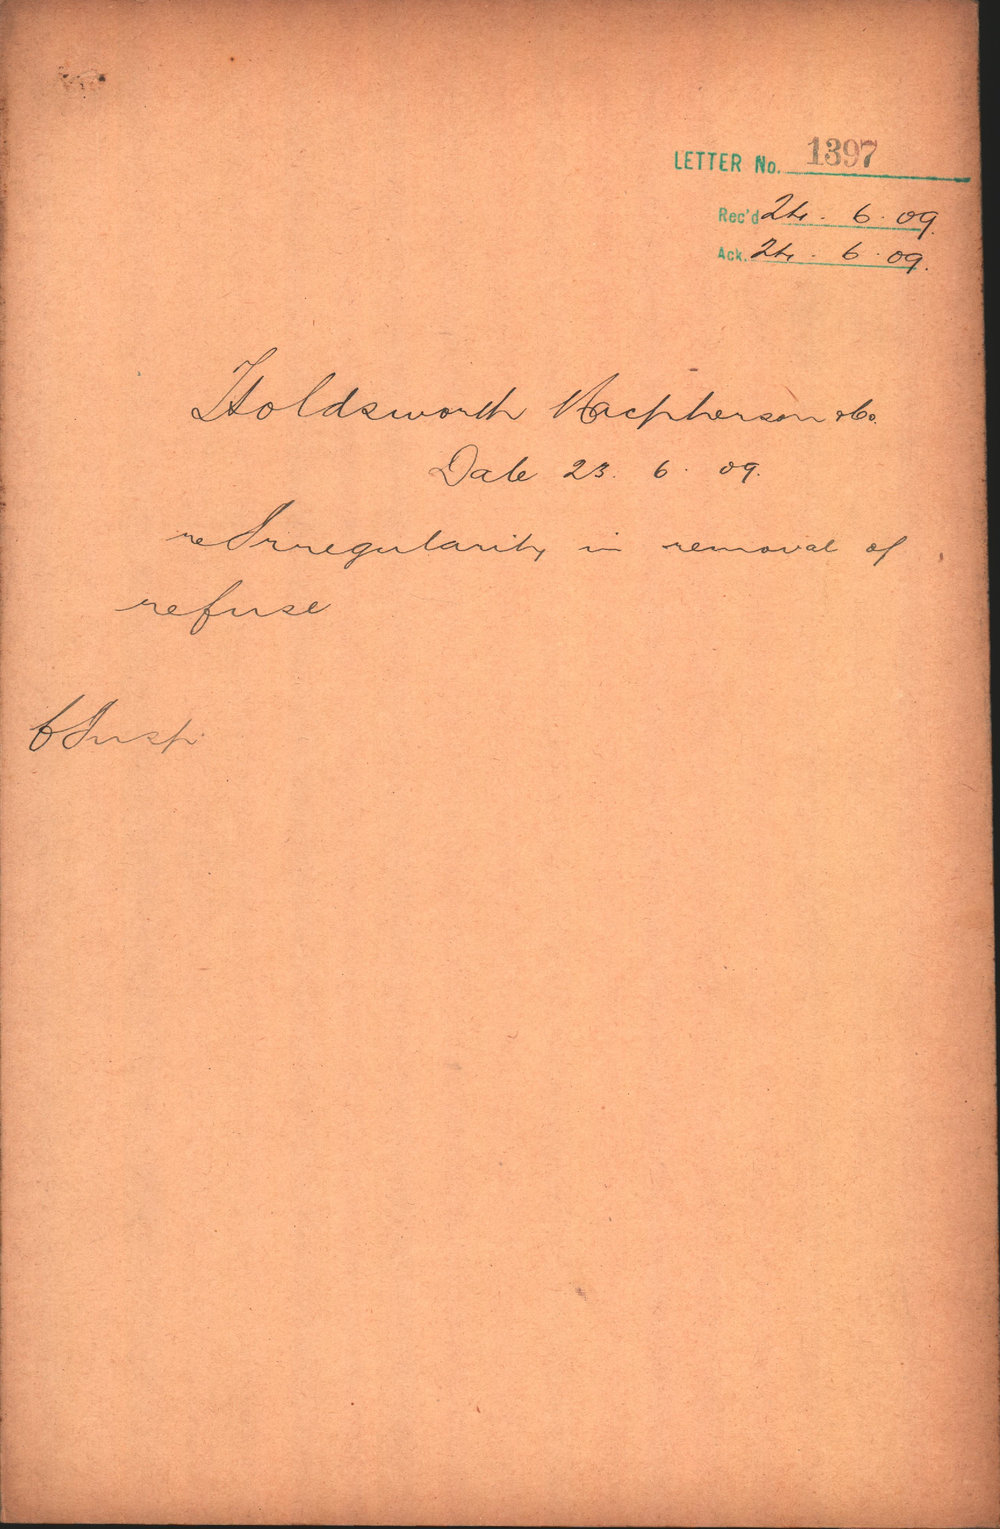 LETTER No. 1397
Rec'd 24. 6. 09.
Ack. 24. 6. 09.
Holdsworth Macpherson & Co.
Date 23. 6. 09.
re Irregularity in removal of
refuse
C Insp.